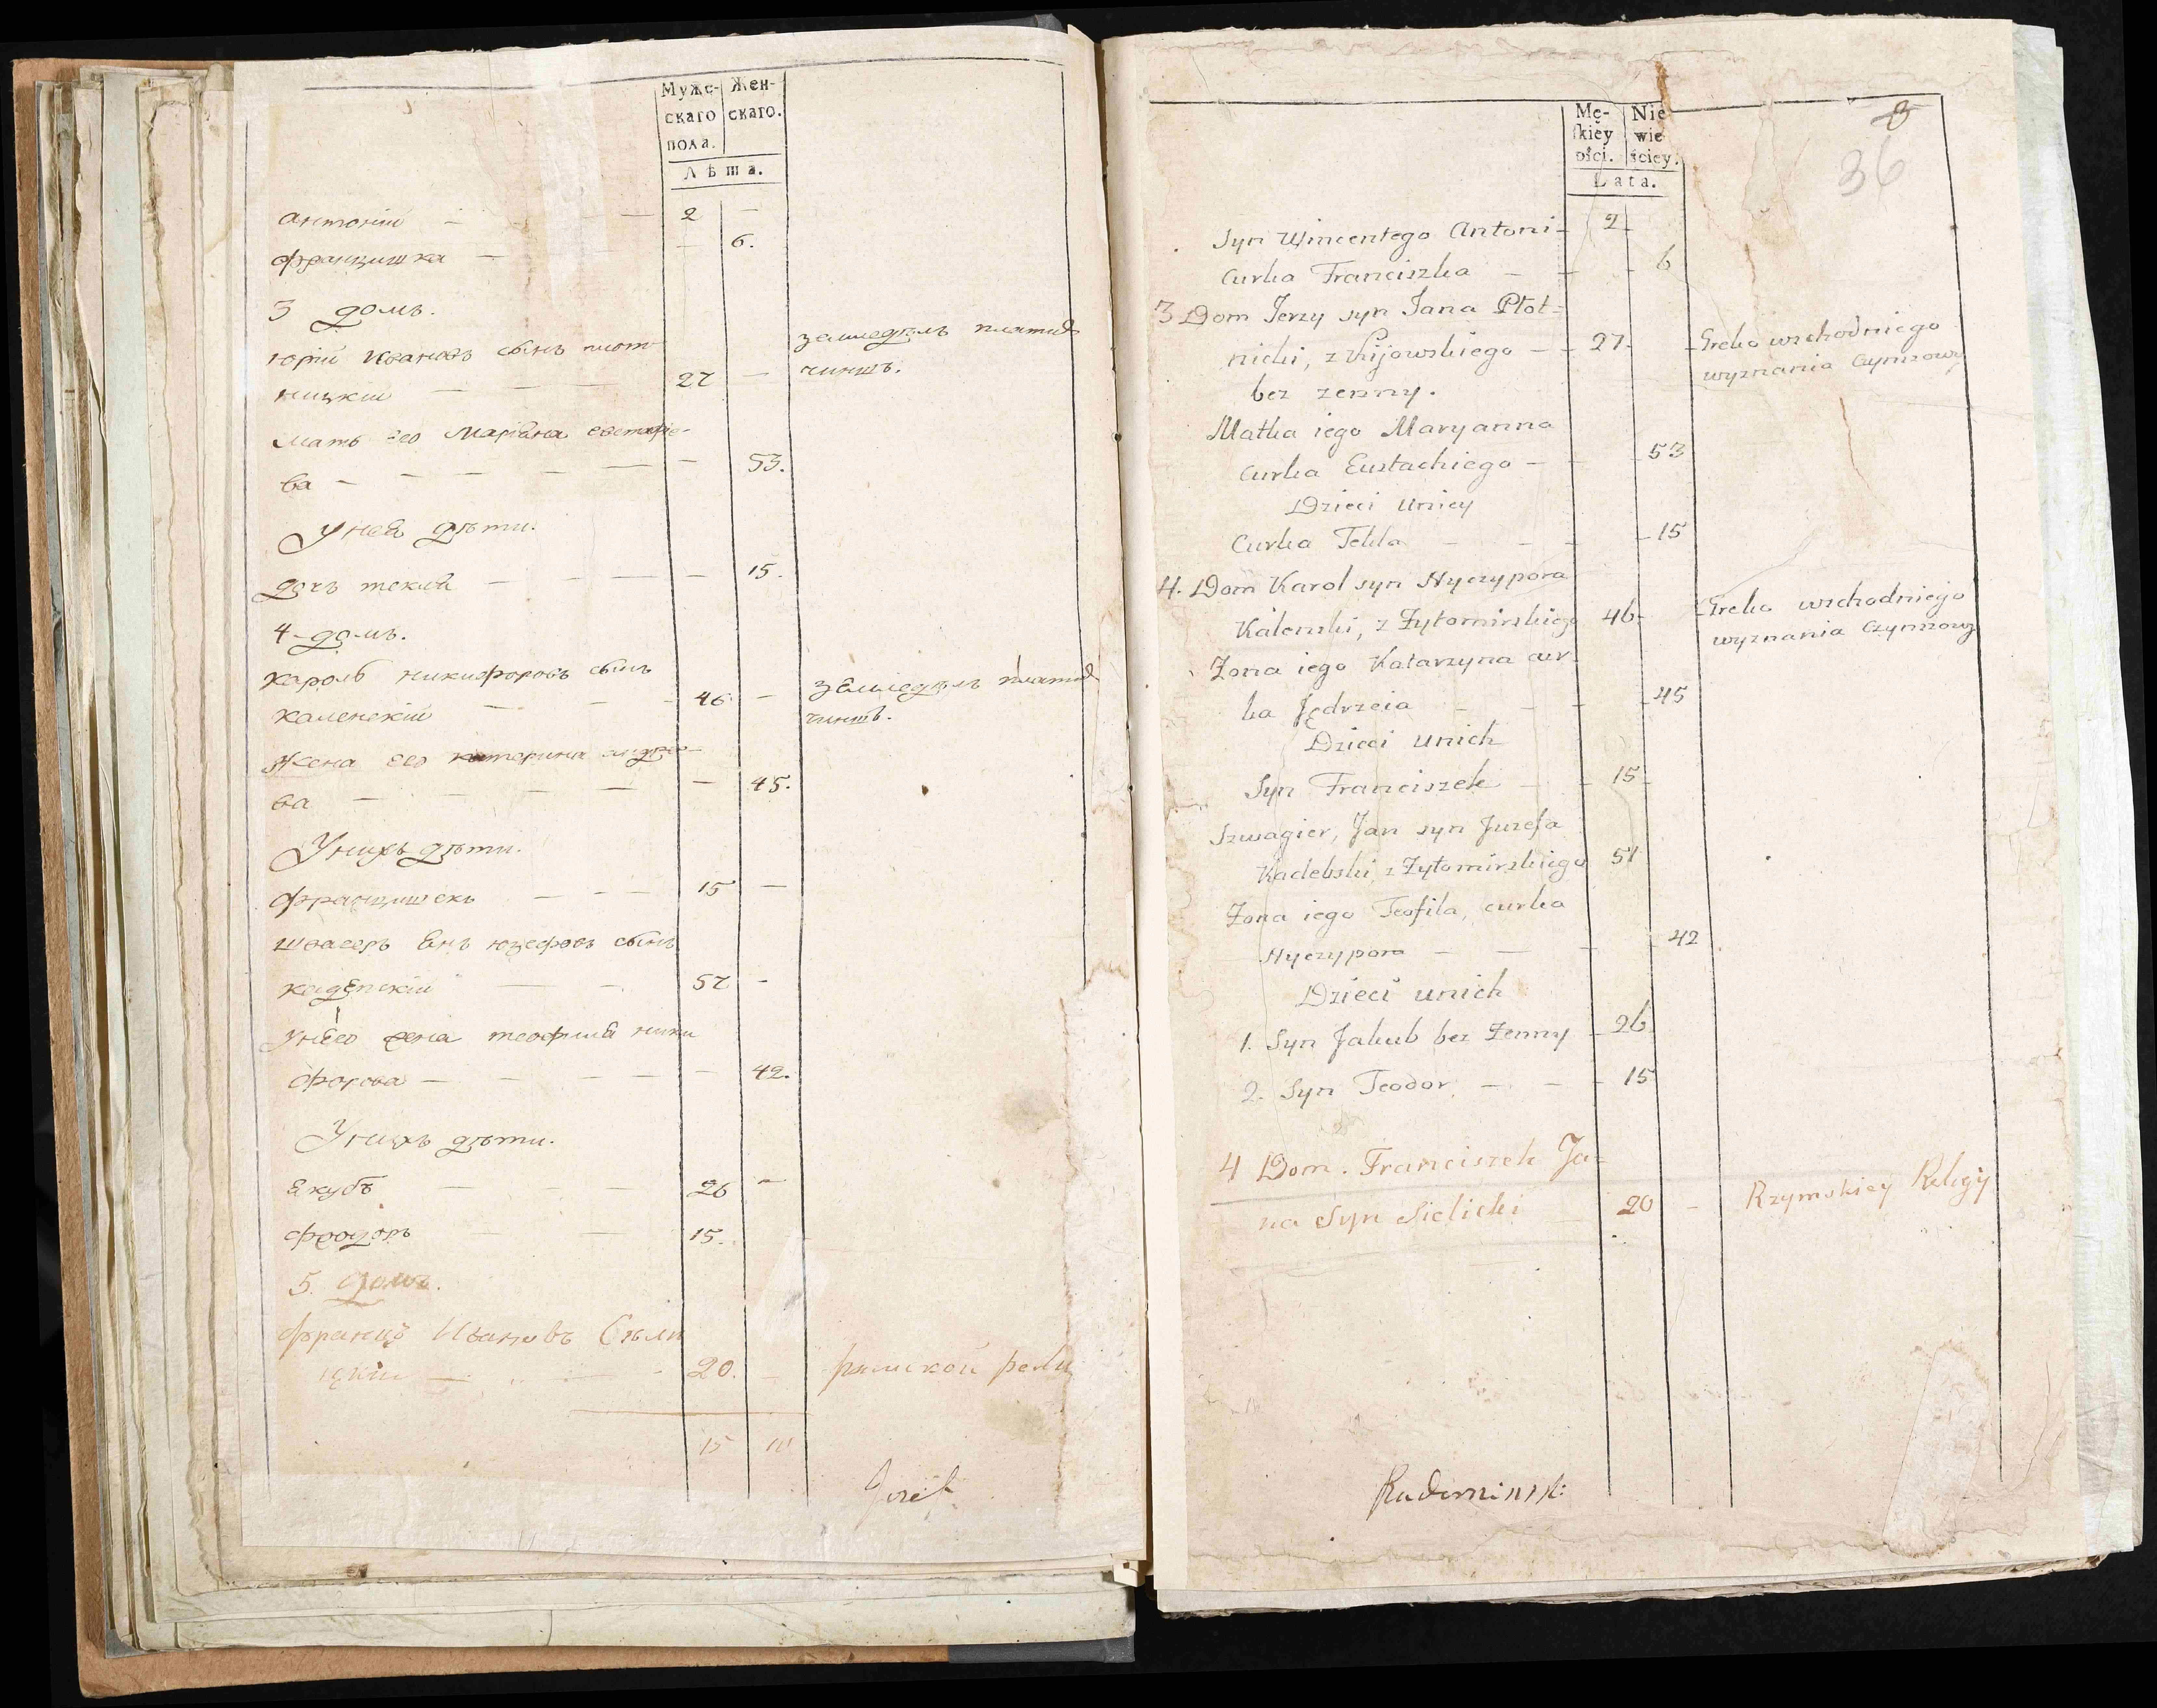 Муже-
скаго
пола.
Жен-
скаго.
Лѣта.
Антоній — — 2 —
Францишка — — 6.
3 домъ.
Юрій Ивановъ сынъ Плот-
ницкій — — — 27 — земледѣлъ платид
чиншъ.
Мать его Маріяна Евстафіе-
ва — — — — — — 53.
У нея дѣти.
дочь Текля — — — — 15.
4 домъ.
Кароль Никифоровъ сынъ
Каленскій — — — 46 — земледѣлъ платид
чиншъ.
Жена его Катерина Андрее-
ва — — — — — — 45.
У нихъ дѣти.
Францишекъ — — — 15 —
Швагеръ Янъ Юзефовъ сынъ
Кадэпскій — — 57 —
У него жена Теофиля Ники
форова — — — — — 42.
У нихъ дѣти.
Якубъ — — — 26 —
Фродоръ — — 15.
5. домъ.
Францъ Ивановъ Сѣли
цкій — — 20. — римской рели
15 10
Mę-
ſkiey
ości.
Nie
wie
ściey.
Lata.
3
36
Syn Wincentego Antoni- 2
Curka Franciszka — — 6
3 Dom Jerzy syn Jana Płot-
nicki, z Kijowskiego — 27 Greko wschodniego
bez zenny. wyznania Czynszowy
Matka iego Maryanna
Curka Eustachiego — 53
Dzieci uniey
Curka Tekla — — — 15
4. Dom Karol syn Nyczypora
Kalenski, z Żytomirskiego 46 Greko wschodniego
wyznania Czynszowy
Żona iego Katarzyna cur-
ka Jędrzeia — — — 45
Dzieci unich
Syn Franciszek — 15
Szwagier, Jan syn Juzefa
Kadebski, z Żytomirskiego 57
Żona iego Teofila, curka
Nyczypora — — — 42
Dzieci unich
1. Syn Jakub bez Żenny 26
2. Syn Teodor — — 15
4 Dom. Franciszek Ja-
na Syn Sielicki — 20 — Rzymskiey Religy